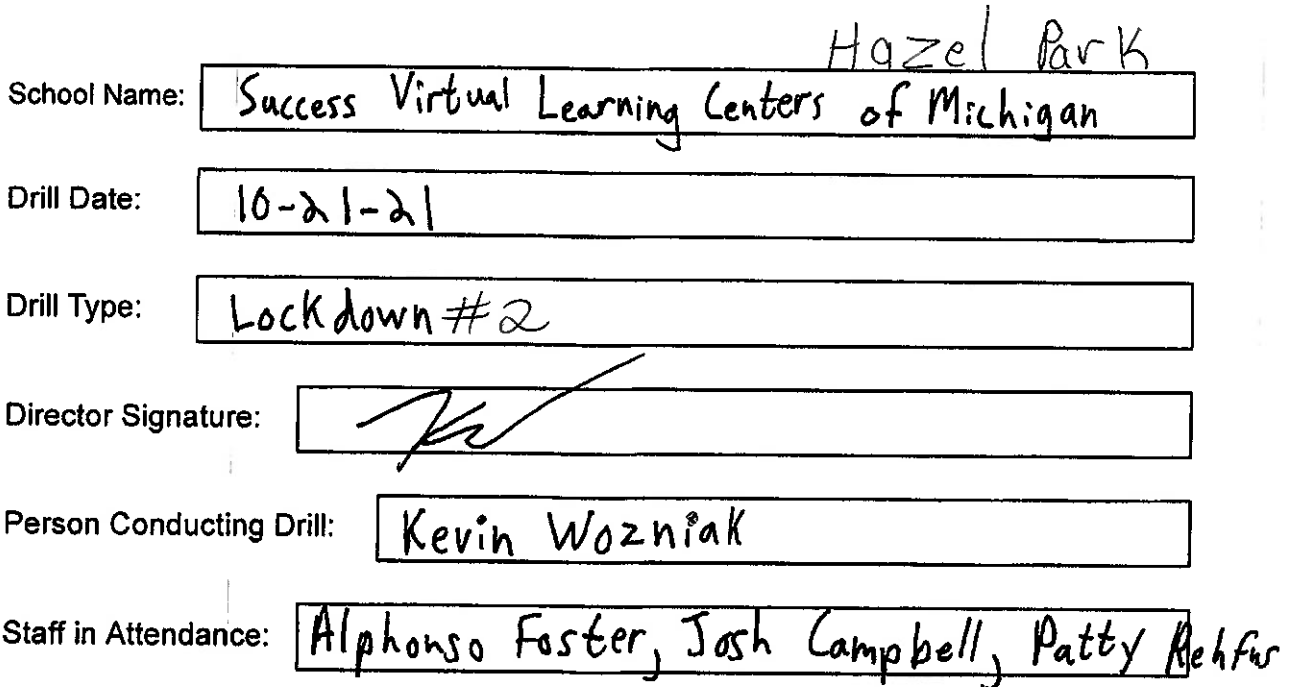 Hazel Park
School Name: Success Virtual Learning Centers of Michigan
Drill Date: 10-21-21
Drill Type: Lockdown #2
Director Signature:
Person Conducting Drill: Kevin Wozniak
Staff in Attendance: Alphonso Foster, Josh Campbell, Patty